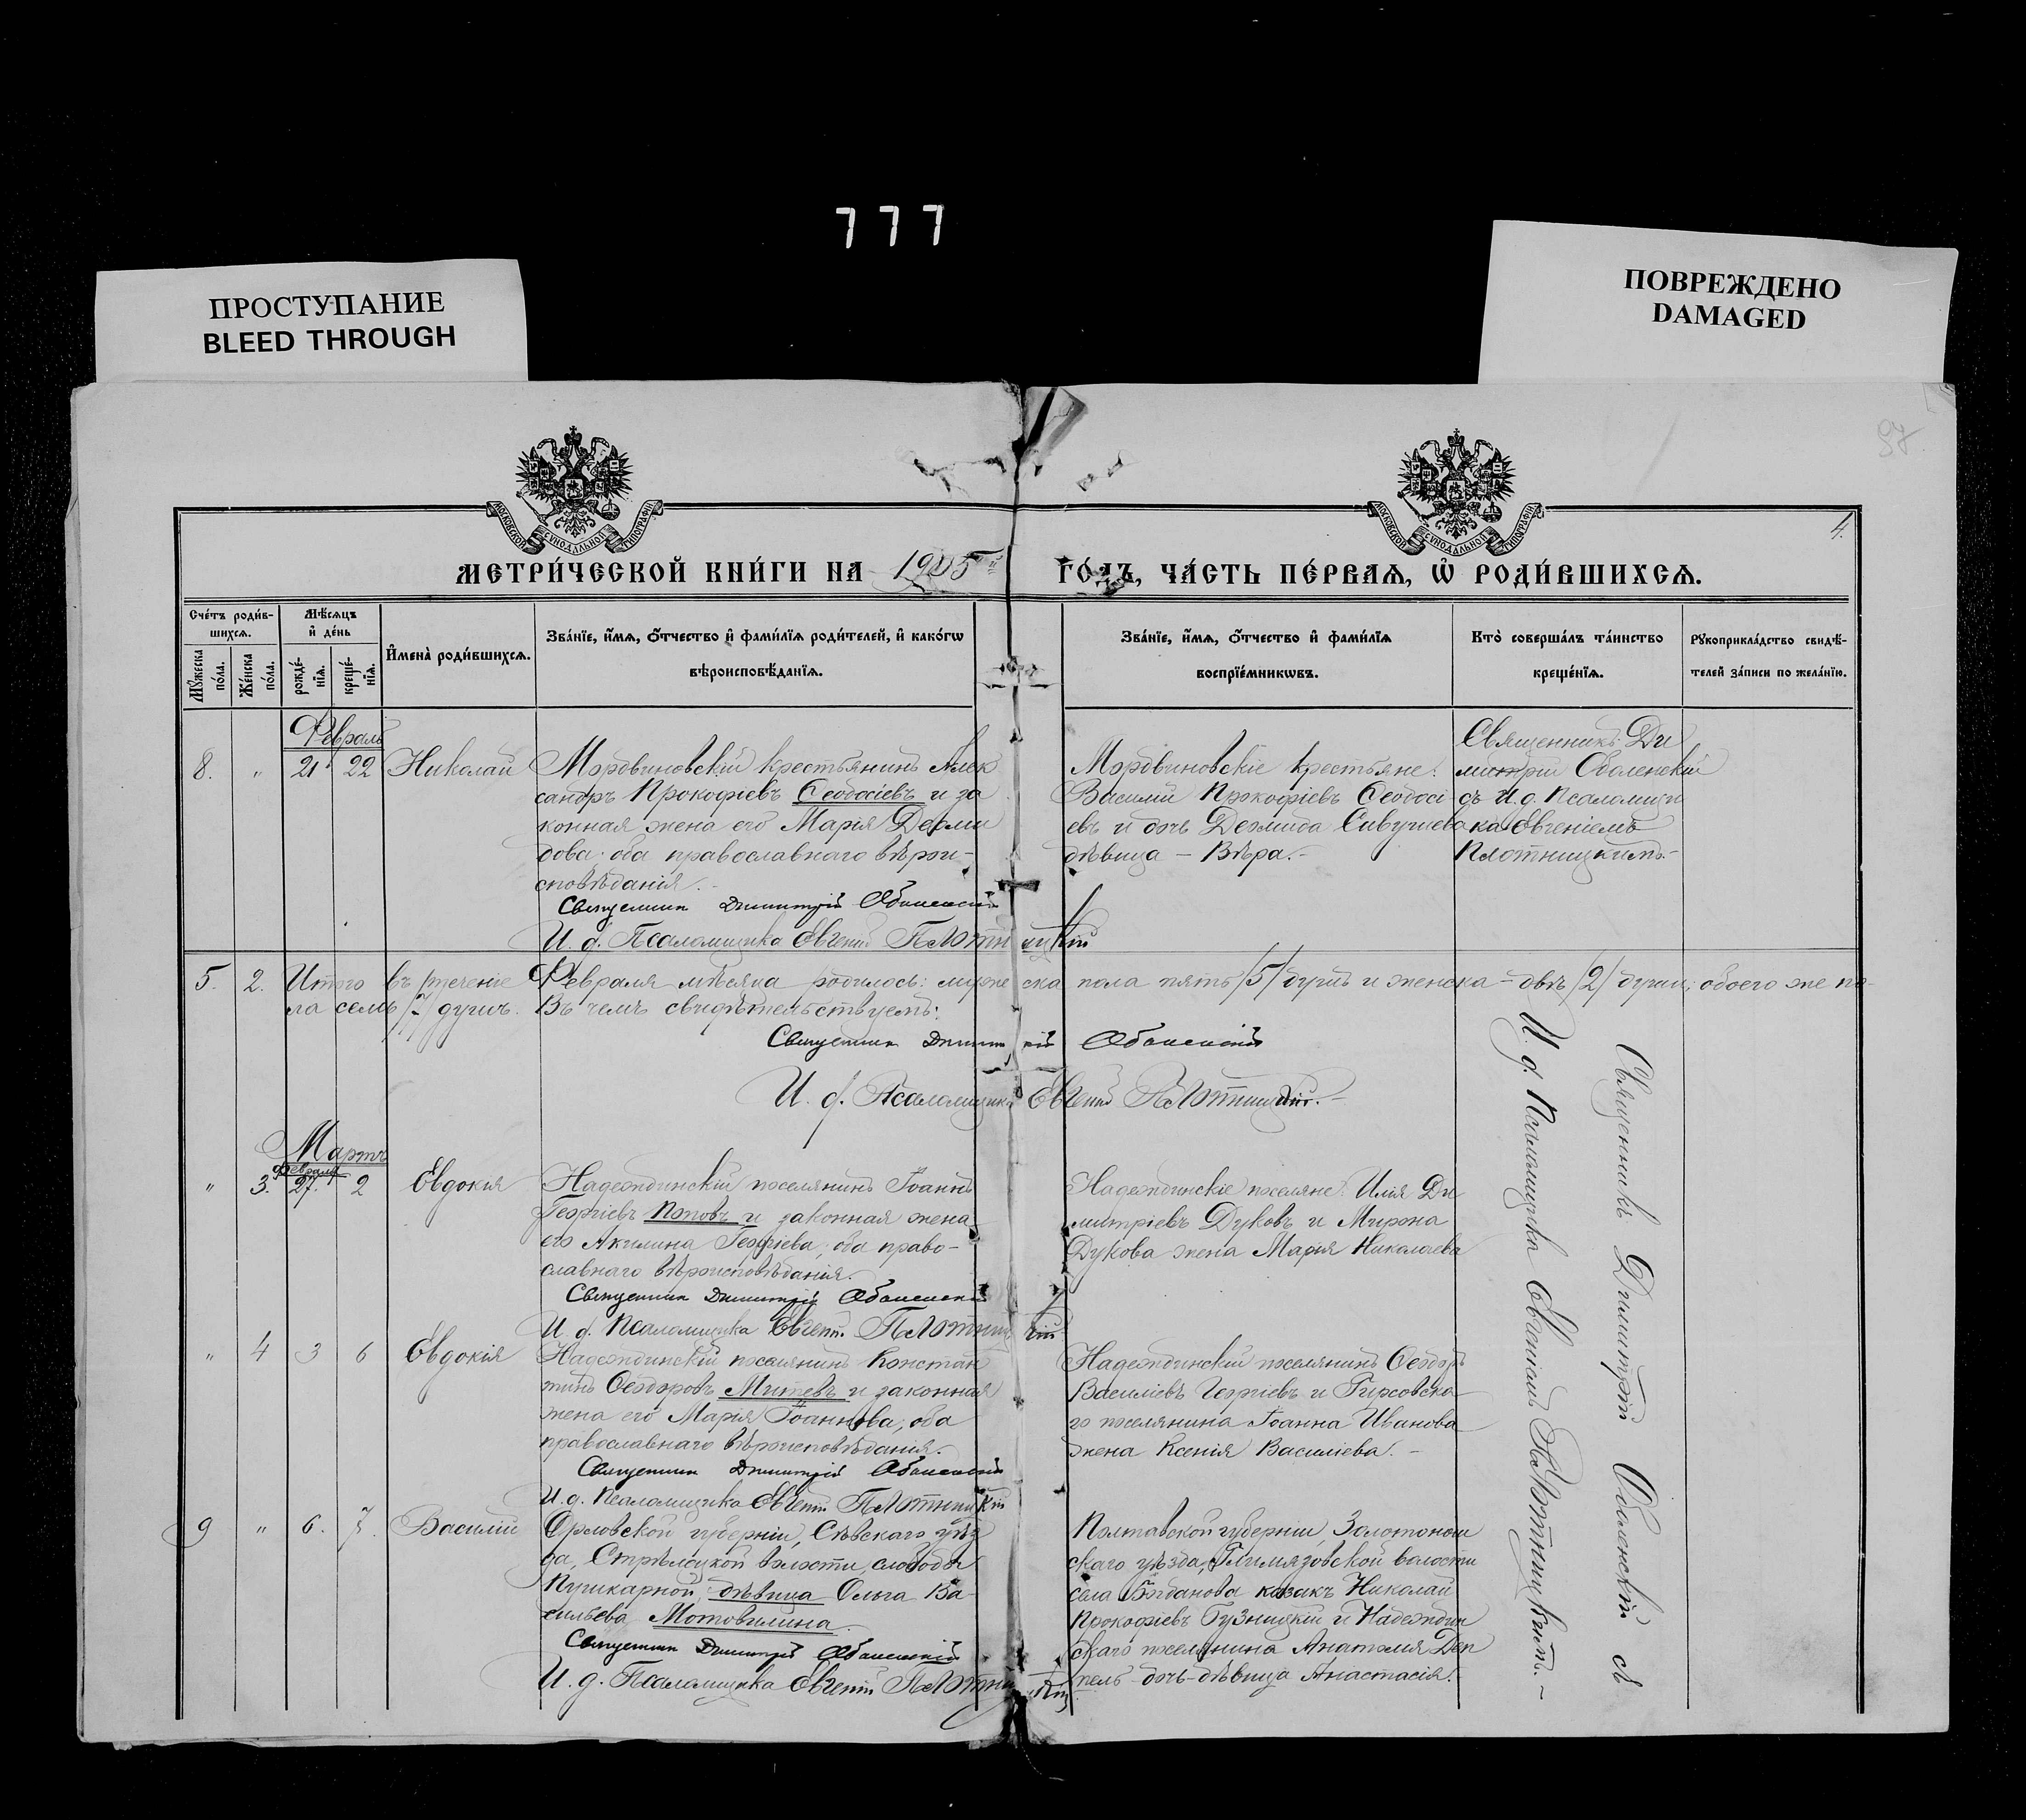 777
ПРОСТУПАНИЕ
BLEED THROUGH
ПОВРЕЖДЕНО
DAMAGED
97
4.
МОСКОВСКОЙ СѴНОДАЛЬНОЙ ТИПОГРАФІИ
МОСКОВСКОЙ СѴНОДАЛЬНОЙ ТИПОГРАФІИ
МЕТРИ́ЧЕСКОЙ КНИ́ГИ НА 1905й ГО́ДЪ, ЧА́СТЬ ПЕ́РВАѦ, Ѽ РОДИ́ВШИХСѦ.
Сче́тъ роди́в-
шихсѧ.
Мꙋ́жеска
по́ла.
Же́нска
по́ла.
Мѣ́сѧцъ
и҆ де́нь
рожде́-
нїѧ.
креще́-
нїѧ.
И҆мена̀ роди́вшихсѧ.
Зва́нїе, и҆́мѧ, ѻ҆́тчество и҆ фами́лїѧ роди́телей, и҆ како́гѡ
вѣроисповѣ́данїѧ.
Зва́нїе, и҆́мѧ, ѻ҆́тчество и҆ фами́лїѧ
воспрїе́мникѡвъ.
Кто̀ соверша́лъ та́инство
креще́нїѧ.
Рꙋкоприкла́дство свидѣ́-
телей за́писи по жела́нїю.
Февраль
8. " 21 22 Николай
Мордвиновскій крестьянинъ Алек
сандръ Прокофіевъ Ѳеодосіевъ и за
конная жена его Марія Деоми
дова: оба православнаго вѣрои-
сповѣданія.
Священник Димитрій Оболенскій
И. д. Псаломщика Евгеній Плотницкій
Мордвиновскіе крестьяне:
Василій Прокофіевъ Ѳеодосі
евъ и дочь Деомида Сивушева
дѣвица – Вѣра.
Священникъ Ди
митрій Оболенскій
съ И. д. Псаломщи
ка Евгеніемъ
Плотницкимъ.
5. 2. Итого въ теченіе Февраля мѣсяца родилось: мужеска пола пять /5/ душъ и женска – двѣ /2/ души; обоего же по-
ла семь /7/ душъ. Въ чемъ свидѣтельствуемъ:
Священник Димитрій Оболенскій
И. д. Псаломщика Евгеній Плотницкій.
Мартъ
Февраля
" 3. 27. 2 Евдокия
Надеждинскій поселянинъ Іоаннъ
Георгіевъ Поповъ и законная жена
его Акилина Георгіева; оба право-
славнаго вѣроисповѣданія.
Священник Димитрій Оболенскій
И. д. Псаломщика Евгеній Плотницкій
Надеждинскіе поселяне: Илія Ди
митріевъ Дуковъ и Мирона
Дукова жена Марія Николаева
" 4 3 6 Евдокія
Надеждинскій поселянинъ Констан
тинъ Ѳеодоровъ Митевъ и законная
жена его Марія Іоаннова, оба
православнаго вѣроисповѣданія.
Священник Димитрій Оболенскій
И. д. Псаломщика Евгеній Плотницкій
Надеждинскій поселянинъ Ѳеодоръ
Василіевъ Георгіевъ и Гирсовска
го поселянина Іоанна Иванова
жена Ксенія Василіева. –
9 " 6. 7. Василій
Орловской губерніи, Сѣвскаго уѣз
да, Стрѣлецкой волости, слободы
Пушкарной, дѣвица Ольга Ва-
сильева Мотовилина.
Священник Димитрій Оболенскій
И. д. Псаломщика Евгеній Плотницкій
Полтавской губерніи, Золотонош
скаго уѣзда, Гельмязовской волости
села Богданова казакъ Николай
Прокофіевъ Гузницкій и Надеждин
скаго поселянина Анатолия
дочь-дѣвица Анастасія.
Священникъ Димитрій Оболенскій съ
И. д. Псаломщика Евгеніемъ Плотницкимъ. –